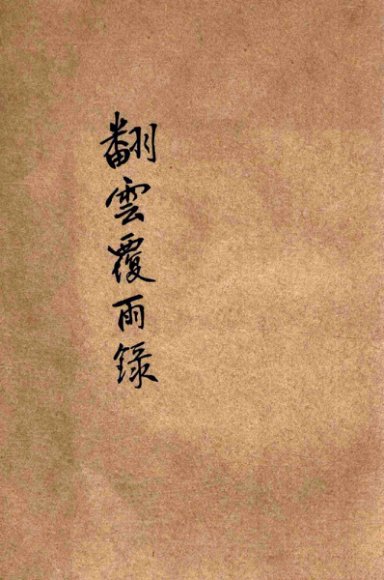 翻雲覆雨錄